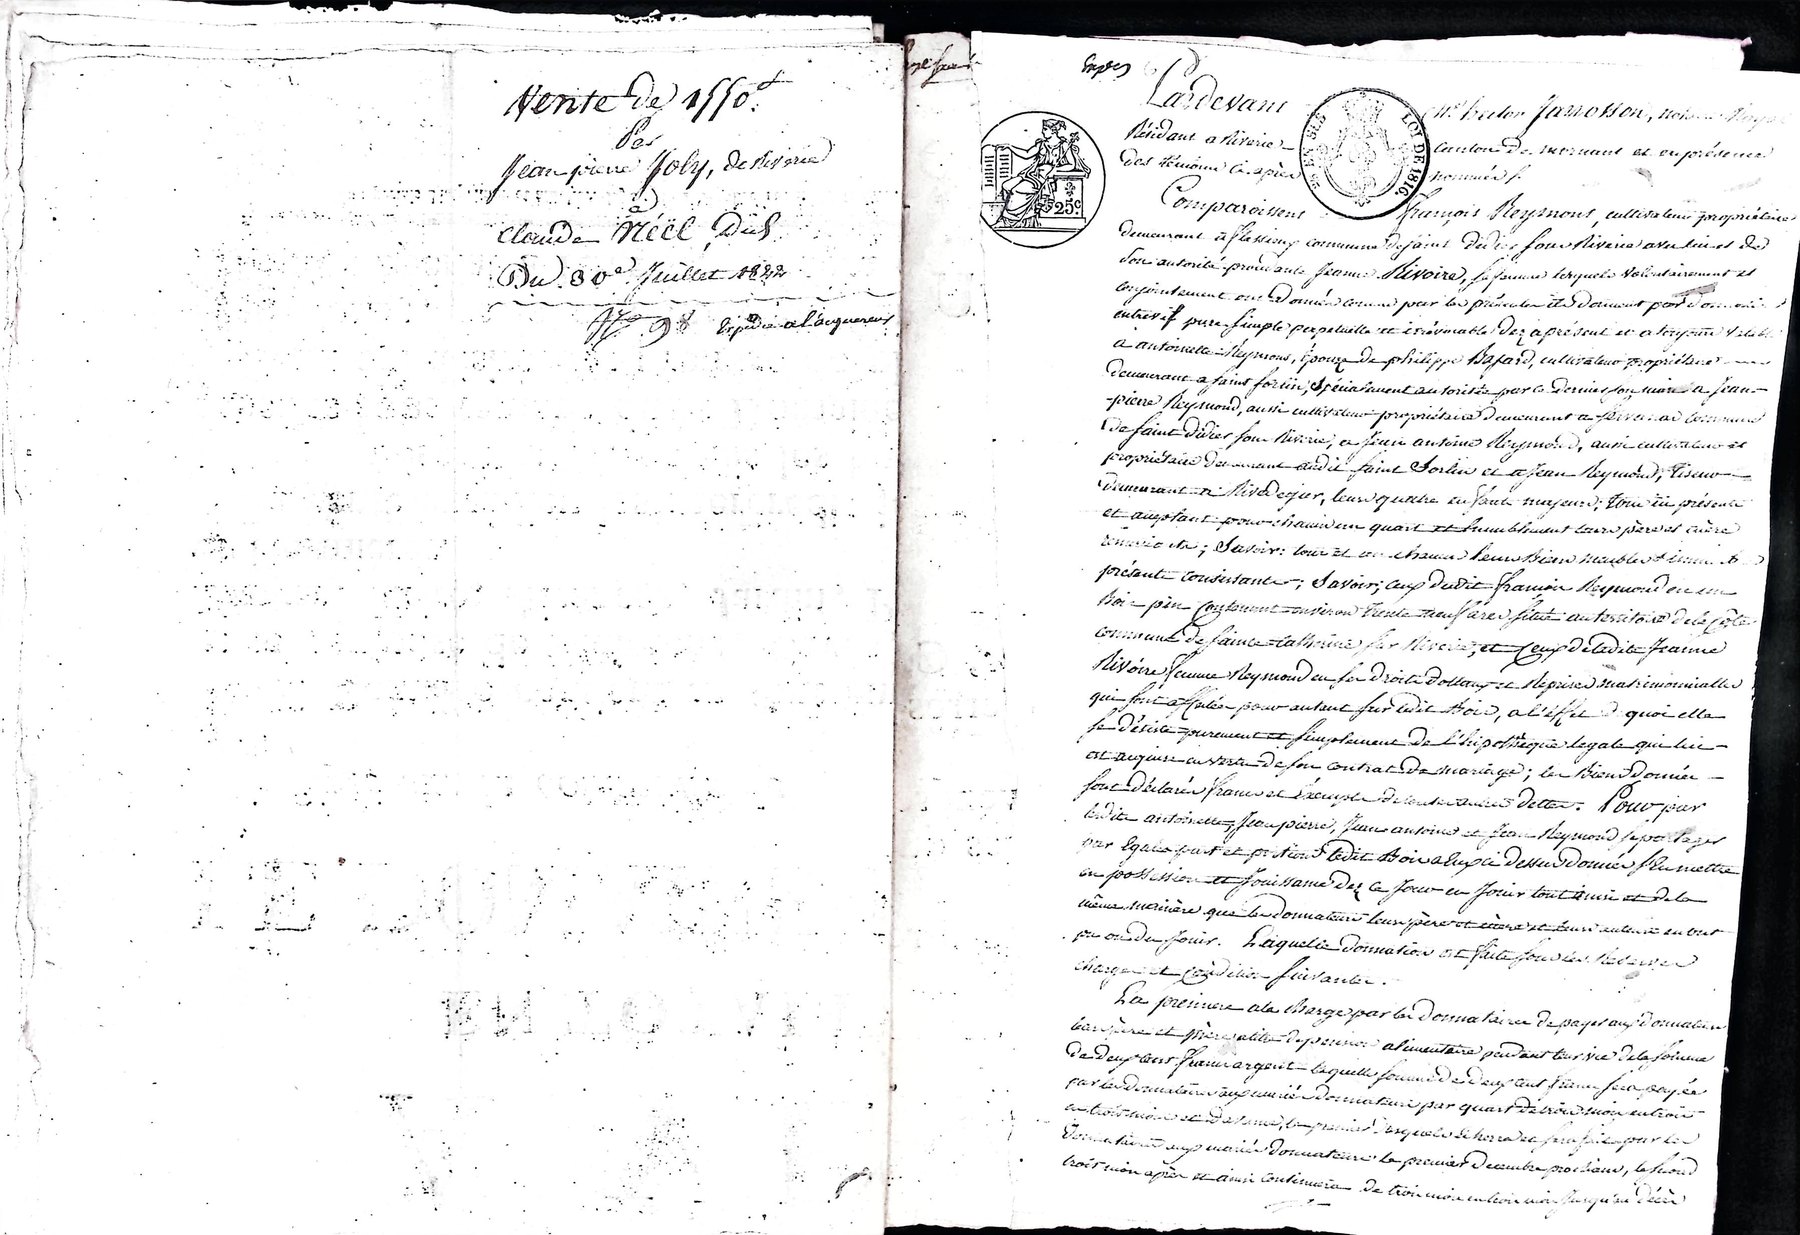 Vente de 1550f.
Par
Jean pierre Joly, de Riverie
a
Claude Néel, Dud.
Du 30e Juillet 1822
Expédié a l'acquereur
Expéd
Pardevant Me hector Jarrosson, notaire Royal
Résidant a Riverie canton de mornant et en présence
des témoins ci après nommés.
25c.
LOI DE 1816.
Comparoissent françois Reymond, cultivateur propriétaire
demeurant à commune de saint didier sous Riverie avec lui et de
son autorité procedante Jeanne Rivoire, sa femme lesquels volontairement et
conjointement ont donné comme par les présentes ils donnent par donnation
entrevif pure simple perpetuelle et irrévocable dez aprésent et a toujours valable
a antoinette Reymond, épouze de philippe Bajard, cultivateur propriétaire
demeurant a saint sorlin, spécialement autorisée par ce dernier son mari a Jean
pierre Reymond, aussi cultivateur propriétaire demeurant a commune
de saint didier sous Riverie, a Jean antoine Reymond, aussi cultivateur et
propriétaire demeurant audit saint Sorlin et a Jean Reymond,
demeurant a Rivedegier, leurs quatre enfants majeurs; tous ici présents
et acceptant pour chacun un quart et humblement leurs père et mère
remerciants; Savoir: tous et un chacun leurs Biens meubles et immeubles
présents consistants; Savoir; ceux dudit françois Reymond en un
Bois pin contenant environ trente neuf ares situé au territoire de la côte
commune de sainte catherine sur Riverie, et ceux de ladite Jeanne
Rivoire femme Reymond en ses droits dottaux et Reprises matrimonialles
qui sont affectés pour autant sur ledit Bois, a l'effet de quoi elle
se désiste purement et simplement de l'hipothèque legale qui lui
est acquise en vertu de son contrat de mariage; les Biens donnés
sont déclarés francs et éxempts de toutes autres dettes. Pour par
ledite antoinette, Jean pierre, Jean antoine et Jean Reymond se partager
par égale part et portion ledit Bois a eux ci dessus donnés s'en mettre
en possession et Jouissance dez ce Jour en Jouir tout ainsi et de la
même manière que les donnateurs leurs père et mère et leurs auteurs en ont
pu ou du Jouir. Laquelle donnation est faite sous les Réserves
charges et conditions suivantes.
La premiere a la charge par les donnataires de payer aux donnateurs
leurs père et mère a titre de pension alimentaire pendant leur vie de la somme
de deux cent francs argent laquelle somme de deux cent francs sera payée
par les donnataires aux mariés donnateurs par quart de trois mois en trois
mois et d'avance, le premier desquels écherra et sera fait par les
donnataires aux mariés donnateurs le premier decembre prochain, le second
trois mois après et ainsi continuera de trois mois en trois mois Jusqu'au décès